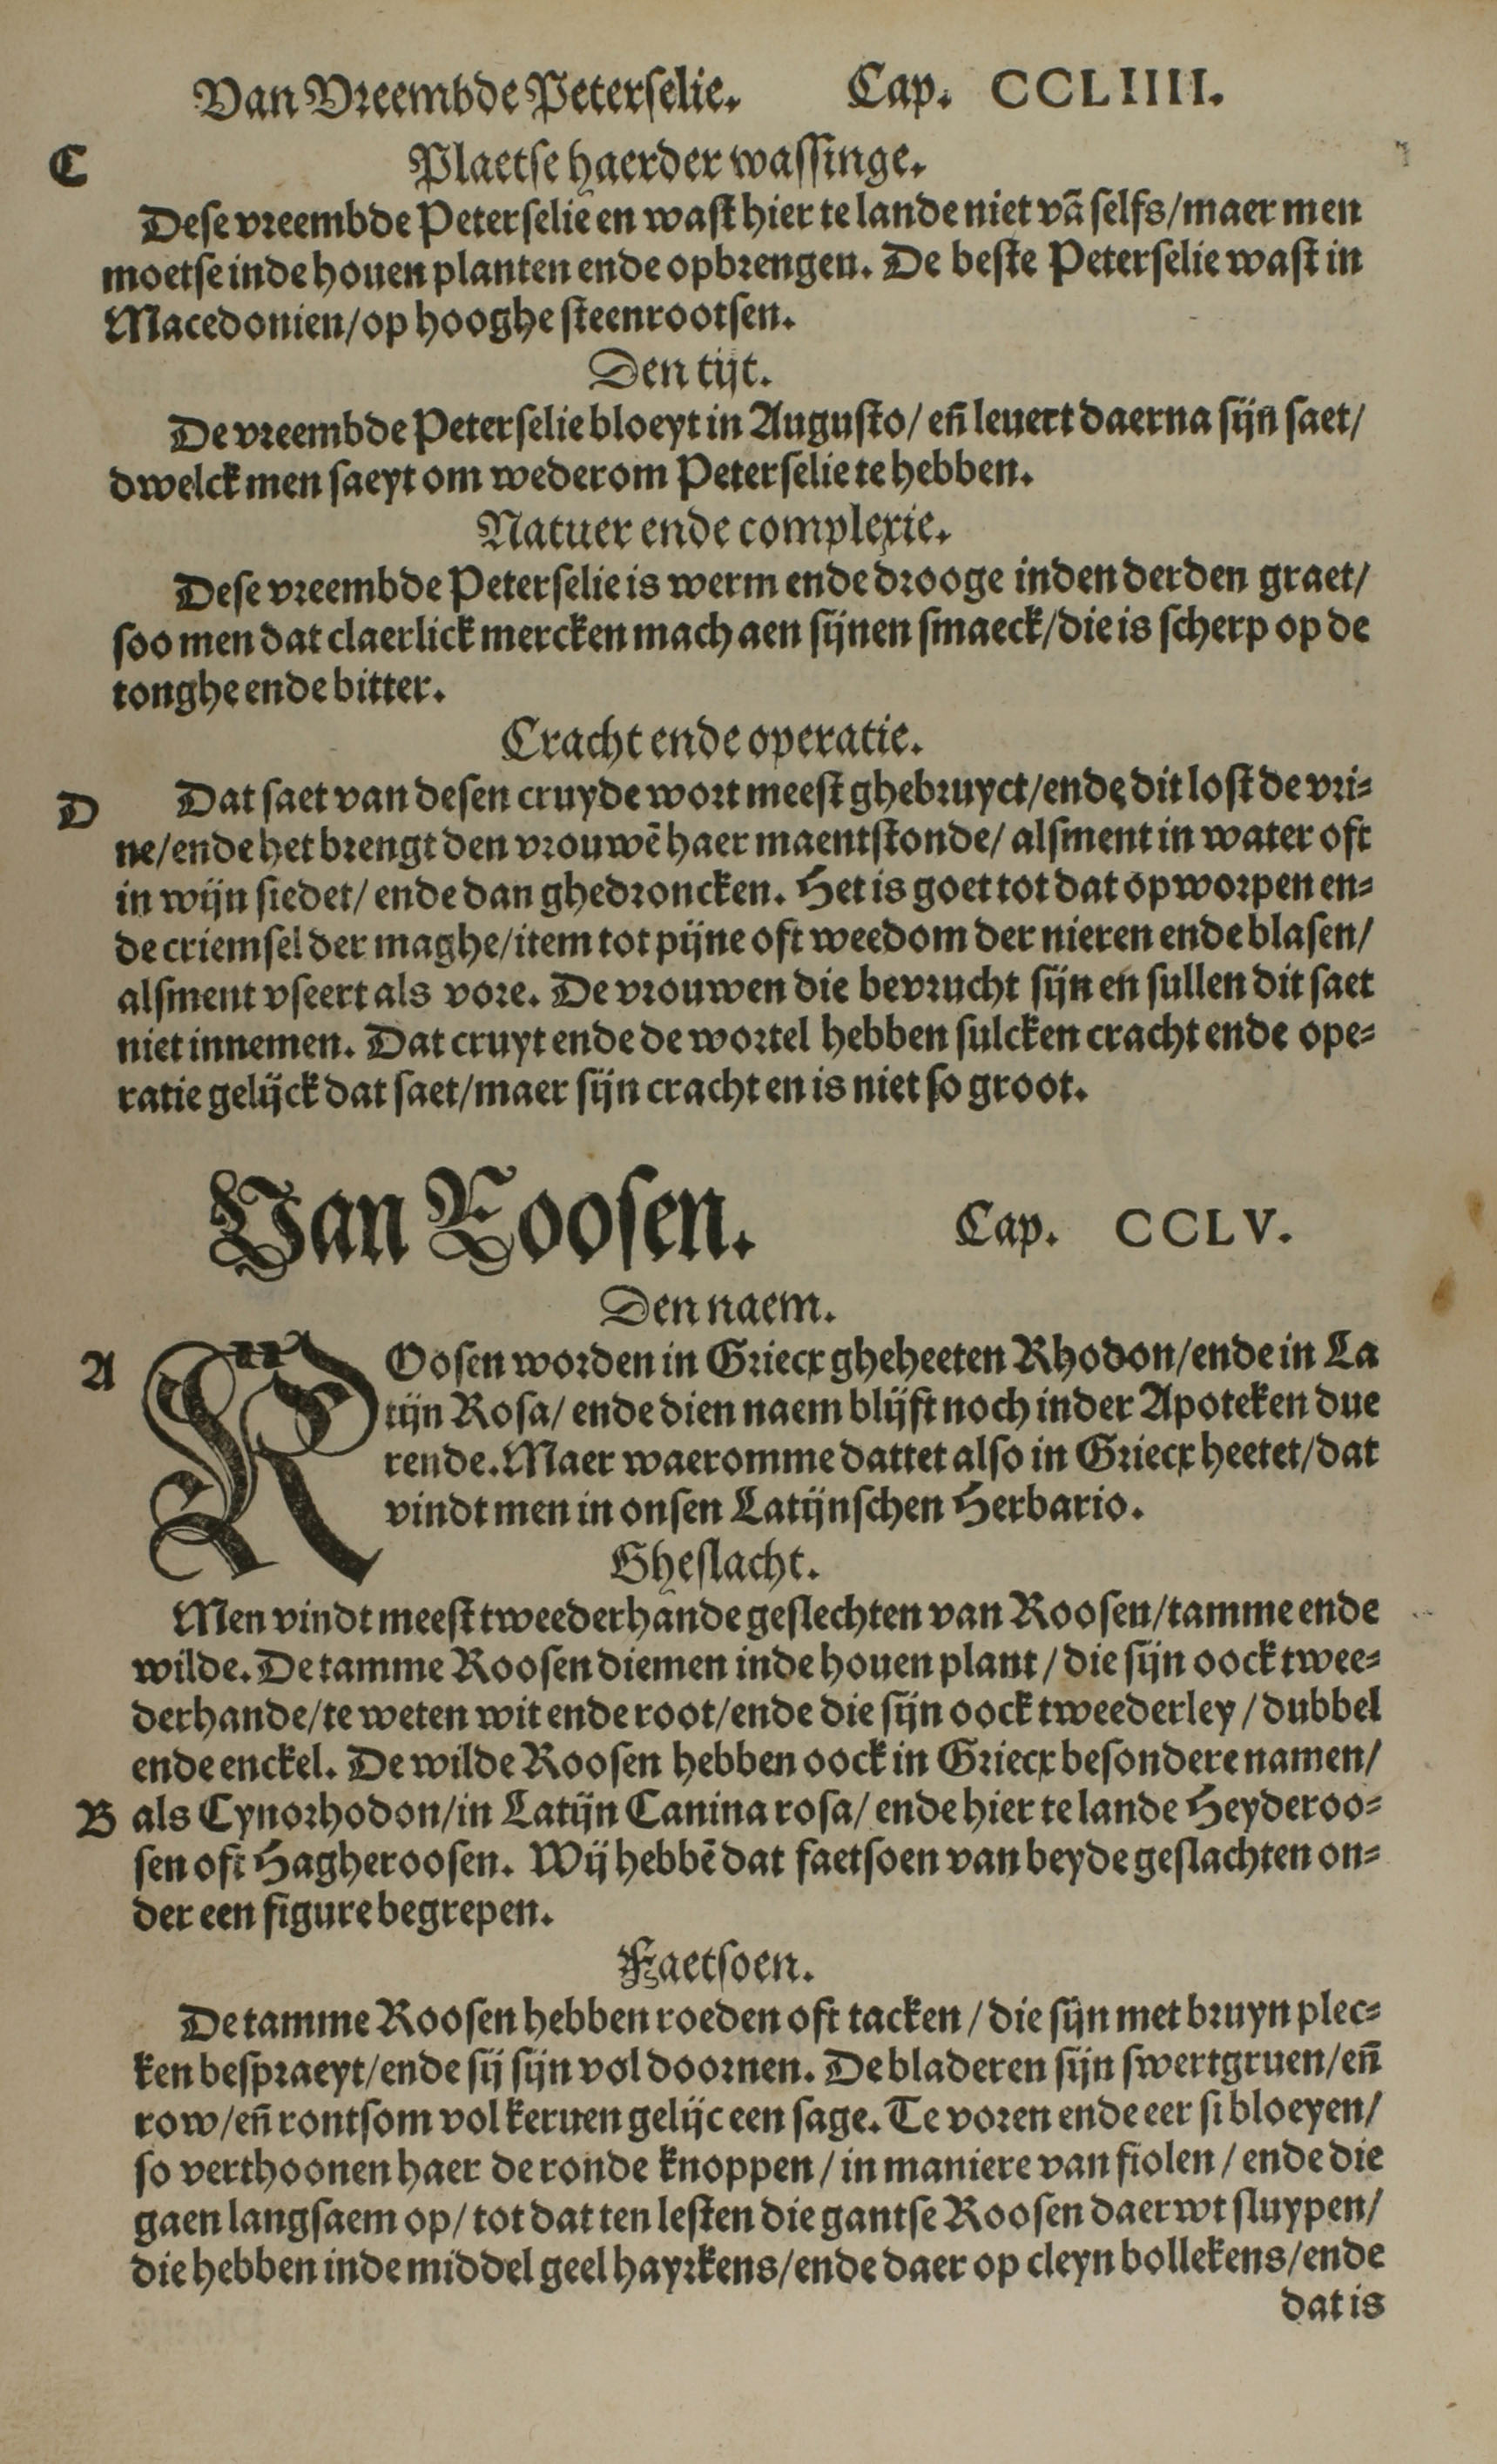 Van Vreembde Peterselie. Cap. CCLIIII.
C Plaetse haerder wassinge.
Dese vreembde Peterselie en wast hier te lande niet vã selfs/maer men
moetse inde houen planten ende opbrengen. De beste Peterselie wast in
Macedonien/op hooghe steenrootsen.
Den tijt.
De vreembde Peterselie bloeyt in Augusto/ eñ leuert daerna sijn saet/
dwelck men saeyt om wederom Peterselie te hebben.
Natuer ende complexie.
Dese vreembde Peterselie is werm ende drooge inden derden graet/
soo men dat claerlick mercken mach aen sijnen smaeck/die is scherp op de
tonghe ende bitter.
Cracht ende operatie.
D Dat saet van desen cruyde wort meest ghebruyct/ende dit lost de vri-
ne/ende het brengt den vrouwẽ haer maentstonde/ alsment in water oft
in wijn siedet/ ende dan ghedroncken. Het is goet tot dat opworpen en-
de criemsel der maghe/item tot pijne oft weedom der nieren ende blasen/
alsment vseert als vore. De vrouwen die bevrucht sijn en sullen dit saet
niet innemen. Dat cruyt ende de wortel hebben sulcken cracht ende ope-
ratie gelijck dat saet/maer sijn cracht en is niet so groot.
Van Roosen. Cap. CCLV.
Den naem.
A ROosen worden in Griecx gheheeten Rhodon/ende in La
tijn Rosa/ ende dien naem blijft noch inder Apoteken due
rende. Maer waeromme dattet also in Griecx heetet/dat
vindt men in onsen Latijnschen Herbario.
Gheslacht.
Men vindt meest tweederhande geslechten van Roosen/tamme ende
wilde. De tamme Roosen diemen inde houen plant/die sijn oock twee-
derhande/te weten wit ende root/ende die sijn oock tweederley/dubbel
ende enckel. De wilde Roosen hebben oock in Griecx besondere namen/
B als Cynorhodon/in Latijn Canina rosa/ ende hier te lande Heyderoo-
sen oft Hagheroosen. Wij hebbẽ dat faetsoen van beyde geslachten on-
der een figure begrepen.
Faetsoen.
De tamme Roosen hebben roeden oft tacken/die sijn met bruyn plec-
ken bespraeyt/ende sij sijn vol doornen. De bladeren sijn swertgruen/eñ
row/eñ rontsom vol keruen gelijc een sage. Te voren ende eer si bloeyen/
so verthoonen haer de ronde knoppen/in maniere van fiolen/ende die
gaen langsaem op/tot dat ten lesten die gantse Roosen daer wt sluypen/
die hebben inde middel geel hayrkens/ende daer op cleyn bollekens/ende
dat is